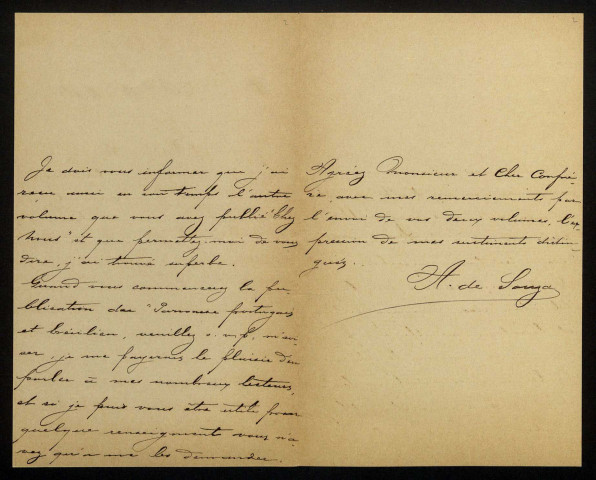 Je dois vous informer que j'ai
reçu aussi en son temps l'autre
volume que vous avez publié "Chez
Nous" et que permettez-moi de vous
dire, j'ai trouvé superbe.
Quand vous commencerez la pu-
blication du "Parnasse portugais
et brésilien, veuillez s.v.p. m'avi-
ser, je me payerais le plaisir d'en
parler à mes nombreux lecteurs,
et si je puis vous être utile pour
quelque renseignements vous n'a-
vez qu'à me les demander.
Agréez Monsieur et Cher Confrè-
re, avec mes remerciements pour
l'envoi de vos deux volumes, l'ex-
pression de mes sentiments distin-
gués.
A. de Souza